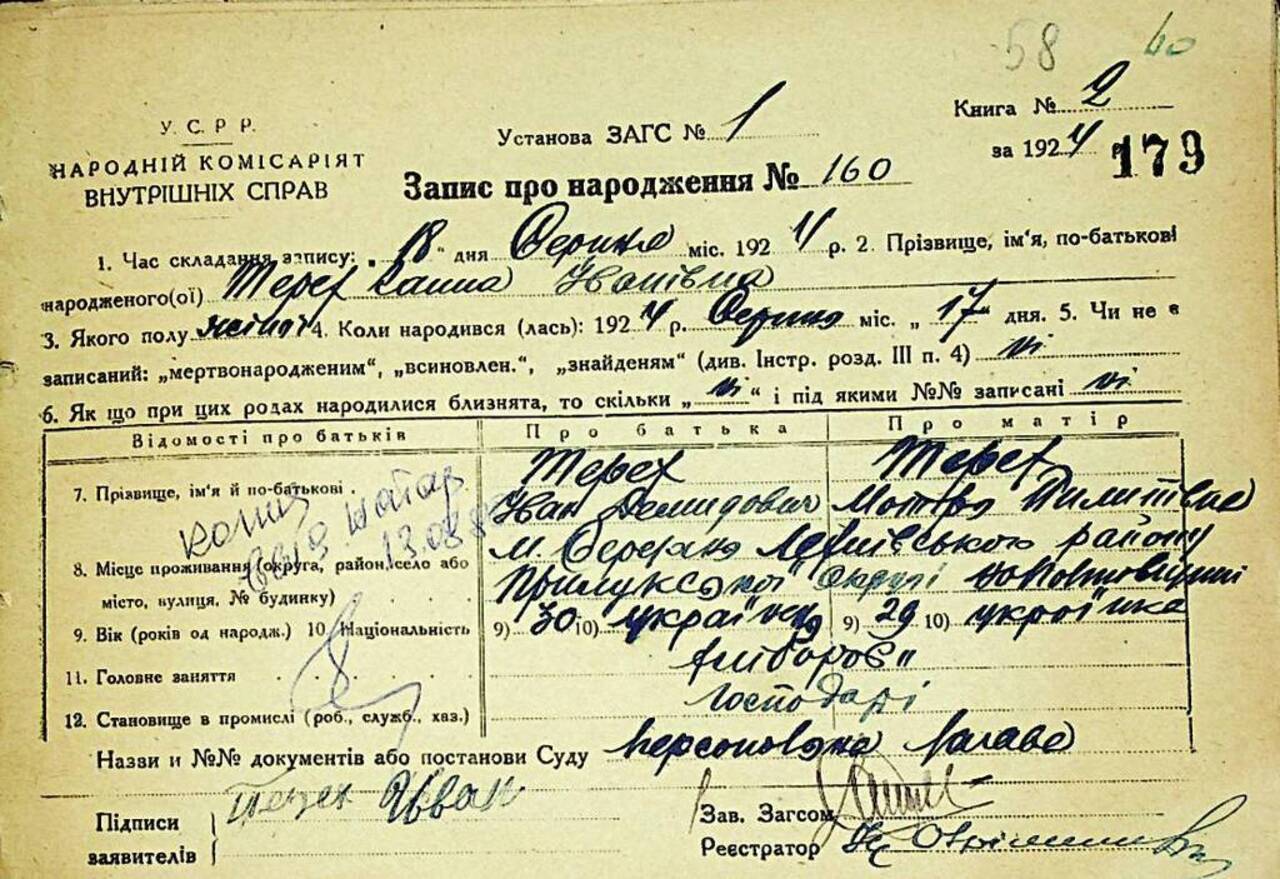 58 60
У. С. Р. Р.
НАРОДНІЙ КОМІСАРІЯТ
ВНУТРІШНІХ СПРАВ
Установа ЗАГС № 1
Книга № 2
за 1924 179
Запис про народження № 160
1. Час складання запису: „ 18 “ дня Серпня міс. 1924 р. 2. Прізвище, ім'я, по-батькові
народженого(ої) Терех Ганна Іванівна
3. Якого полу жіночі 4. Коли народився (лась): 1924 р. Серпня міс. „ 17 “ дня. 5. Чи не є
записаний: „мертвонародженим“, „всиновлен.“, „знайденям“ (див. Інстр. розд. III п. 4) ні
6. Як що при цих родах народилися близнята, то скільки „ ні “ і під якими №№ записані ні
Відомості про батьків Про батька Про матір
7. Прізвище, ім'я й по-батькові Терех Терех
Іван Демидович Мотря Пилипівна
13.03
8. Місце проживання (округа, район, село або
місто, вулиця, № будинку)
м. Березань району
Прилуцької округи на Полтавщині
9. Вік (років од народж.) 10. Національність 9) 30 10) українець 9) 29 10) українка
11. Головне заняття хлібороби
12. Становище в промислі (роб., служб., хаз.) господарі
Назви и №№ документів або постанови Суду персональна
Підписи
заявителів
Терех Іван
Зав. Загсом
Реєстратор